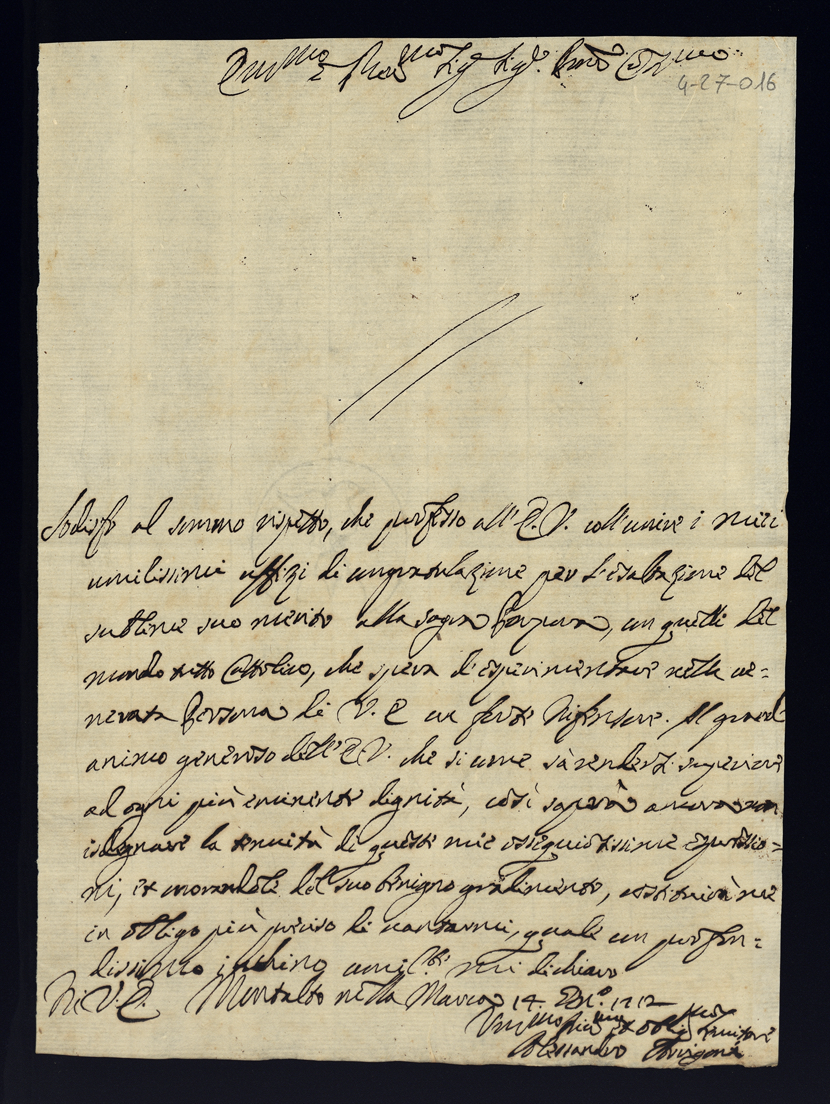 Em.mo e Rev.mo Sig.r Sig.r P.ron Col.mo
4-27-016
Sodisfo al sommo rispetto, che professo all'E.V. coll'unire i miei
umilissimi uffizi di congratulazione per l'esaltazione del
sublime suo merito alla sagra Porpora, con quelli del
mondo tutto Cattolico, che spera d'esperimentare nella ve=
nerata Persona di V.E. un forte difensore. Il grand
animo generoso dell'E.V. che si come sà rendersi superiore
ad ogni più eminente dignità, così saprà ancora non
isdegnare la tenuità di queste mie ossequiosissime espressio=
ni, et onorandole del suo benigno gradimento, costituirà me
in obligo più preciso di vantarmi, quale con profon=
dissimo inchino umil.te mi dichiaro
Di V.E. Montalto nella Marca 14
Um.mo et oblig.mo Servitore
Alessandro